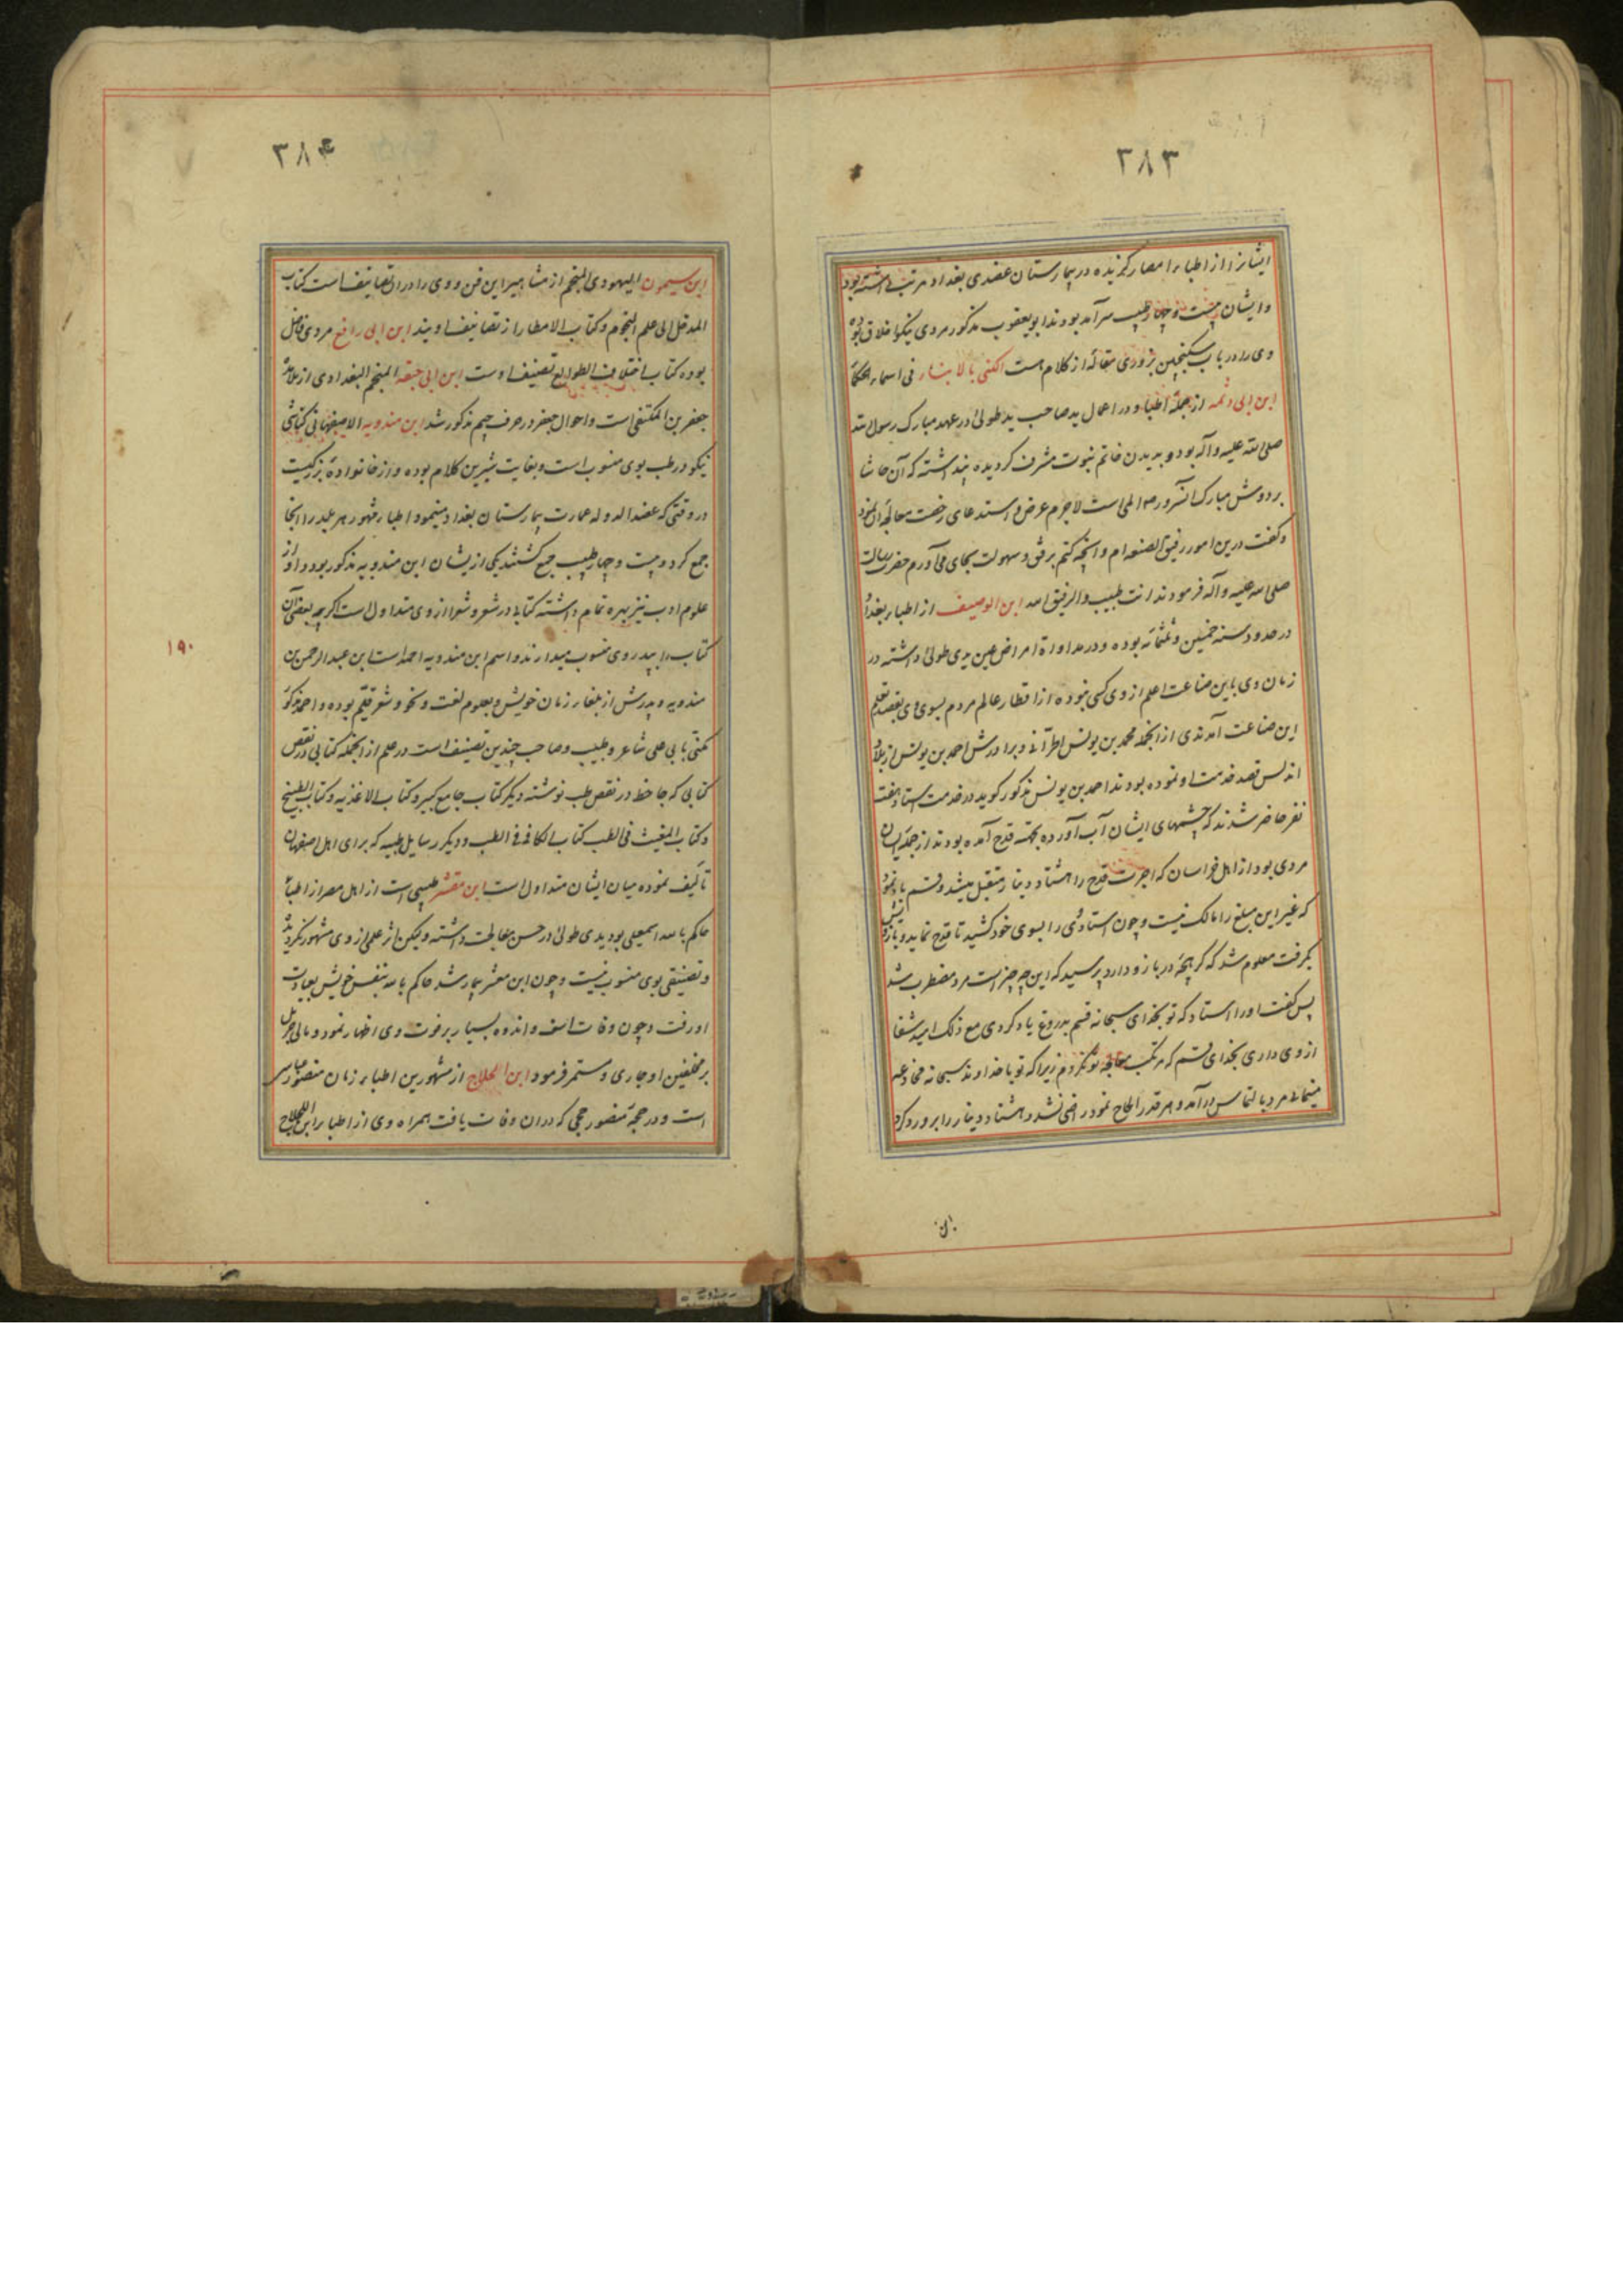 ۳۸۳
ایشانرا از اطباء امصار کزیده در بیمارستان عضدی بغداد مرتب داشته بود
و ایشان بیست و چهار طبیب سرآمد بودند ابو یعقوب مذکور مردی نیکو اخلاق بوده
وی را در باب سکنجبین بزوری مقاله از کلام هست الکنی بالابناء فی اسماء الحکما
ابن ابی رمثه از جمله اطبا و در اعمال ید صاحب ید طولی در عهد مبارک رسول الله
صلی الله علیه و آله بود و بدیدن خاتم نبوت مشرف کردیده پنداشته که آن حاشا
بر دوش مبارک آنسرور صلعم المی است لاجرم عرض و استدعای رخصت معالجه آن نمود
و کفت درین امور رفیق الصنعه‌ام و آنچه کنم برفق و سهولت بجای می آورم حضرت رسالت
صلی الله علیه و آله فرمودند انت طبیب والرفیق الله ابن الوصیف از اطباء بغداد
در حدود سنه خمسین و ثلثمائه بوده و در مداواة امراض عین یدی طولی داشته در
زمان وی باین صناعت اعلم از وی کسی نبوده از اقطار عالم مردم بسوی وی بقصد تعلم
این صناعت آمدندی از آنجمله محمد بن یونس الحرآنی و برادرش احمد بن یونس از بلاد
اندلس قصد خدمت او نموده بودند احمد بن یونس مذکور کوید در خدمت استاد هفت
نفر حاضر شدند که چشمهای ایشان آب آورده بجهت قدح آمده بودند از جمله ایشان
مردی بود از اهل خراسان که اجرت قدح را هشتاد دینار متقبل میشد و قسم یاد نمود
که غیر این مبلغ را مالک نیست و چون استاد وی را بسوی خود کشید تا قدح نماید و بازویش
بکرفت معلوم شد که کریچه در بازو دارد پرسید که این چه چیز است مرد مضطرب شد
پس کفت او را استاد که تو بخدای سبحانه قسم بدروغ یاد کردی مع ذلک امید شفا
از وی داری بخدای قسم که مرتکب معالجه تو نکردم زیرا که تو با خداوند سبحانه مخادعه
مینمائی مرد بالتماس درآمد و هر قدر الحاح نمود راضی نشد و هشتاد دینار را بر او رد کرد
ابن
۳۸۴
ابن سیمون الیهودی المنجم از مشاهیر این فن و وی را در ان تصانیف است کتاب
المدخل الی علم النجوم و کتاب الامطار از تصانیف اویند ابن ابی رافع مردی فاضل
بوده کتاب اختلاف الطوالع تصنیف اوست ابن ابی حبقه المنجم البغدادی از تلامذه
جعفر بن المکتفی است و احوال جعفر در حرف جیم مذکور شد ابن مندویه الاصفهانی کناشی
نیکو در طب بوی منسوب است و بغایت شیرین کلام بوده و از خانوادهٔ بزرکیست
در وقتی که عضدالدوله عمارت بیمارستان بغداد مینمود اطباء مشهور هر بلد را آنجا
جمع کرد و بیست و چهار طبیب جمع کشتند یکی از یشان ابن مندویه مذکور بود و او از
علوم ادب نیز بهره تمام داشته کتابی در شعر و شعرا از وی متداول است اکرچه بعضی آن
کتاب را بپدر وی منسوب میدارند و اسم ابن مندویه احمد است ابن عبدالرحمن بن
مندویه و پدرش از بلغاء زمان خویش و بعلوم لغت و نحو و شعر قیّم بوده و احمد مذکور
مکنّی بابی علی شاعر و طبیب و صاحب چندین تصنیف است در علم از آنجمله کتابی در نقض
کتابی که جاحظ در نقض طب نوشته و دیکر کتاب جامع کبیر و کتاب الاغذیه و کتاب الطبیخ
و کتاب المغیث فی الطب کتاب الکافی فی الطب و دیکر رسایل طبیه که برای اهل اصفهان
تألیف نموده میان ایشان متداول است ابن مقشر طبیبی است از اهل مصر از اطباء
حاکم بامر الله اسمعیلی بود یدی طولی در حسن معالجت داشته ولیکن اثر علمی از وی مشهور نکردیده
و تصنیفی بوی منسوب نیست و چون ابن مقشر بیمار شد حاکم بامر الله بنفس خویش بعیادت
او رفت و چون وفات یافت و اندوه بسیار بر فوت وی اظهار نمود و مالی جزیل
بر مخلفین او جاری و مستمر فرمود ابن اللجلاج از مشهورین اطباء زمان منصور عباسی
است و در حجهٔ منصور حجی که در ان وفات یافت همراه وی از اطباء ابن اللجلاج
۱۹۰